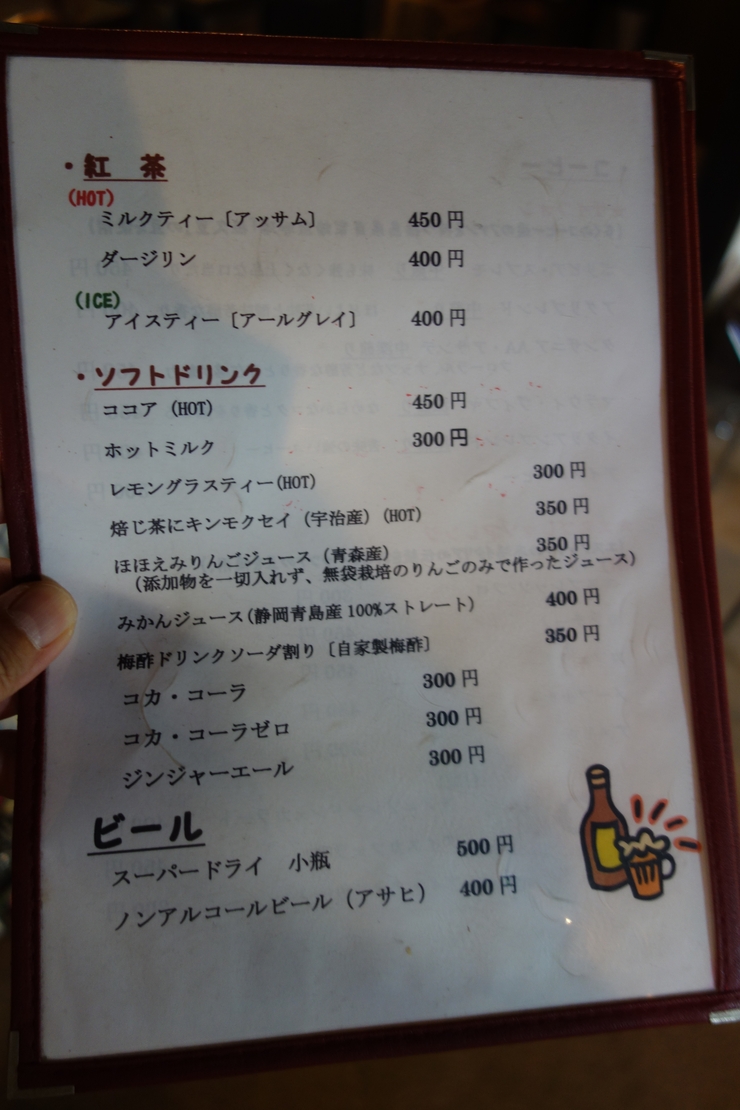 ・紅 茶
(HOT)
ミルクティー〔アッサム〕 450円
ダージリン 400円
(ICE)
アイスティー〔アールグレイ〕 400円
・ソフトドリンク
ココア (HOT) 450円
ホットミルク 300円
レモングラスティー(HOT) 300円
焙じ茶にキンモクセイ (宇治産) (HOT) 350円
ほほえみりんごジュース (青森産) 350円
(添加物を一切入れず、無袋栽培のりんごのみで作ったジュース)
みかんジュース(静岡青島産100%ストレート) 400円
梅酢ドリンクソーダ割り〔自家製梅酢〕 350円
コカ・コーラ 300円
コカ・コーラゼロ 300円
ジンジャーエール 300円
ビール
スーパードライ 小瓶 500円
ノンアルコールビール (アサヒ) 400円